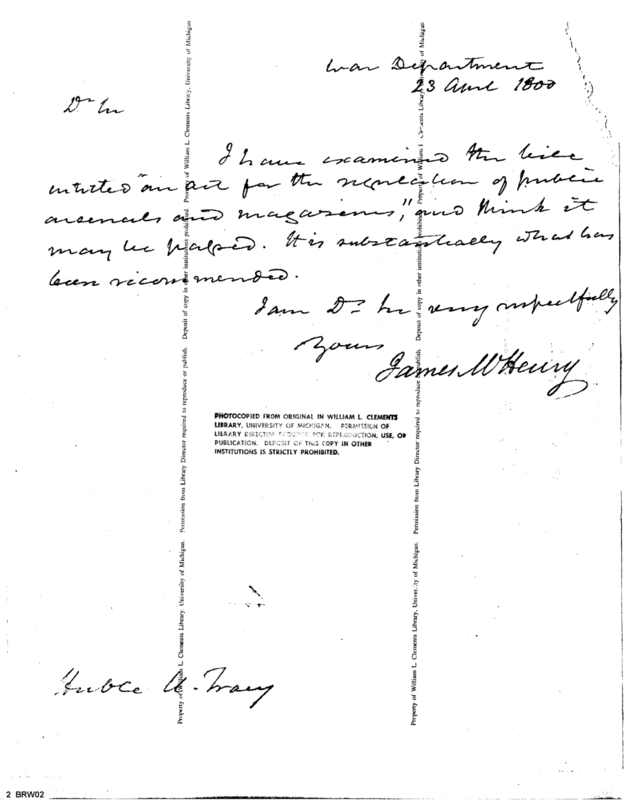 War Department
23 April 1800
Dr Sir
I have examined the bill
intitled "an act for the regulation of public
arsenals and magazines," and think it
may be passed. It is substantially what has
been recommended.
I am Dr Sir very respectfully
Yours
James McHenry
PHOTOCOPIED FROM ORIGINAL IN WILLIAM L. CLEMENTS
LIBRARY, UNIVERSITY OF MICHIGAN. PERMISSION OF
LIBRARY DIRECTOR REQUIRED FOR REPRODUCTION, USE, OR
PUBLICATION. DEPOSIT OF THIS COPY IN OTHER
INSTITUTIONS IS STRICTLY PROHIBITED.
Honble U. Tracy
Property of William L. Clements Library, University of Michigan. Permission from Library Director required to reproduce or publish. Deposit of copy in other institutions prohibited. Property of William L. Clements Library, University of Michigan
Property of William L. Clements Library, University of Michigan. Permission from Library Director required to reproduce or publish. Deposit of copy in other institutions prohibited. Property of William L. Clements Library, University of Michigan
2 BRW02